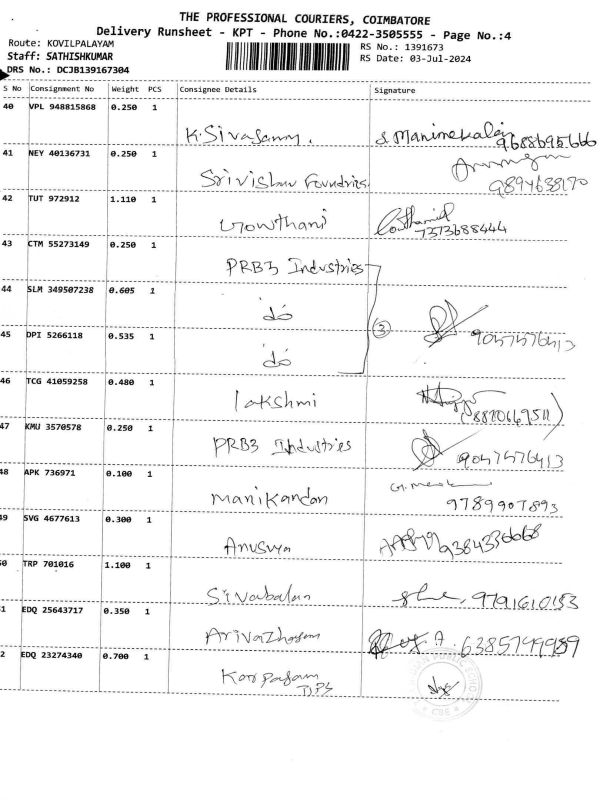 THE PROFESSIONAL COURIERS, COIMBATORE
Delivery Runsheet - KPT - Phone No.:0422-3505555 - Page No.:4
Route: KOVILPALAYAM
RS No.: 1391673
Staff: SATHISHKUMAR
RS Date: 03-Jul-2024
DRS No.: DCJB139167304
S No Consignment No Weight PCS Consignee Details Signature
40 VPL 948815868 0.250 1
K. Sivasamy. 9688695666
41 NEY 40136731 0.250 1
Srivishnu Foundries.
42 TUT 972912 1.110 1
Gowthami 7373688444
43 CTM 55273149 0.250 1
PRB3 Industries
44 SLM 349507238 0.605 1
do
3
45 DPI 5266118 0.535 1
do
46 TCG 41059258 0.480 1
lakshmi
47 KMU 3570578 0.250 1
PRB3 Industries
48 APK 736971 0.100 1
Manikandan 9789907893
49 SVG 4677613 0.300 1
Anusuya
0 TRP 701016 1.100 1
Sivabalan
1 EDQ 25643717 0.350 1
Arivazhagan
2 EDQ 23274340 0.700 1
Karpagam
CBE